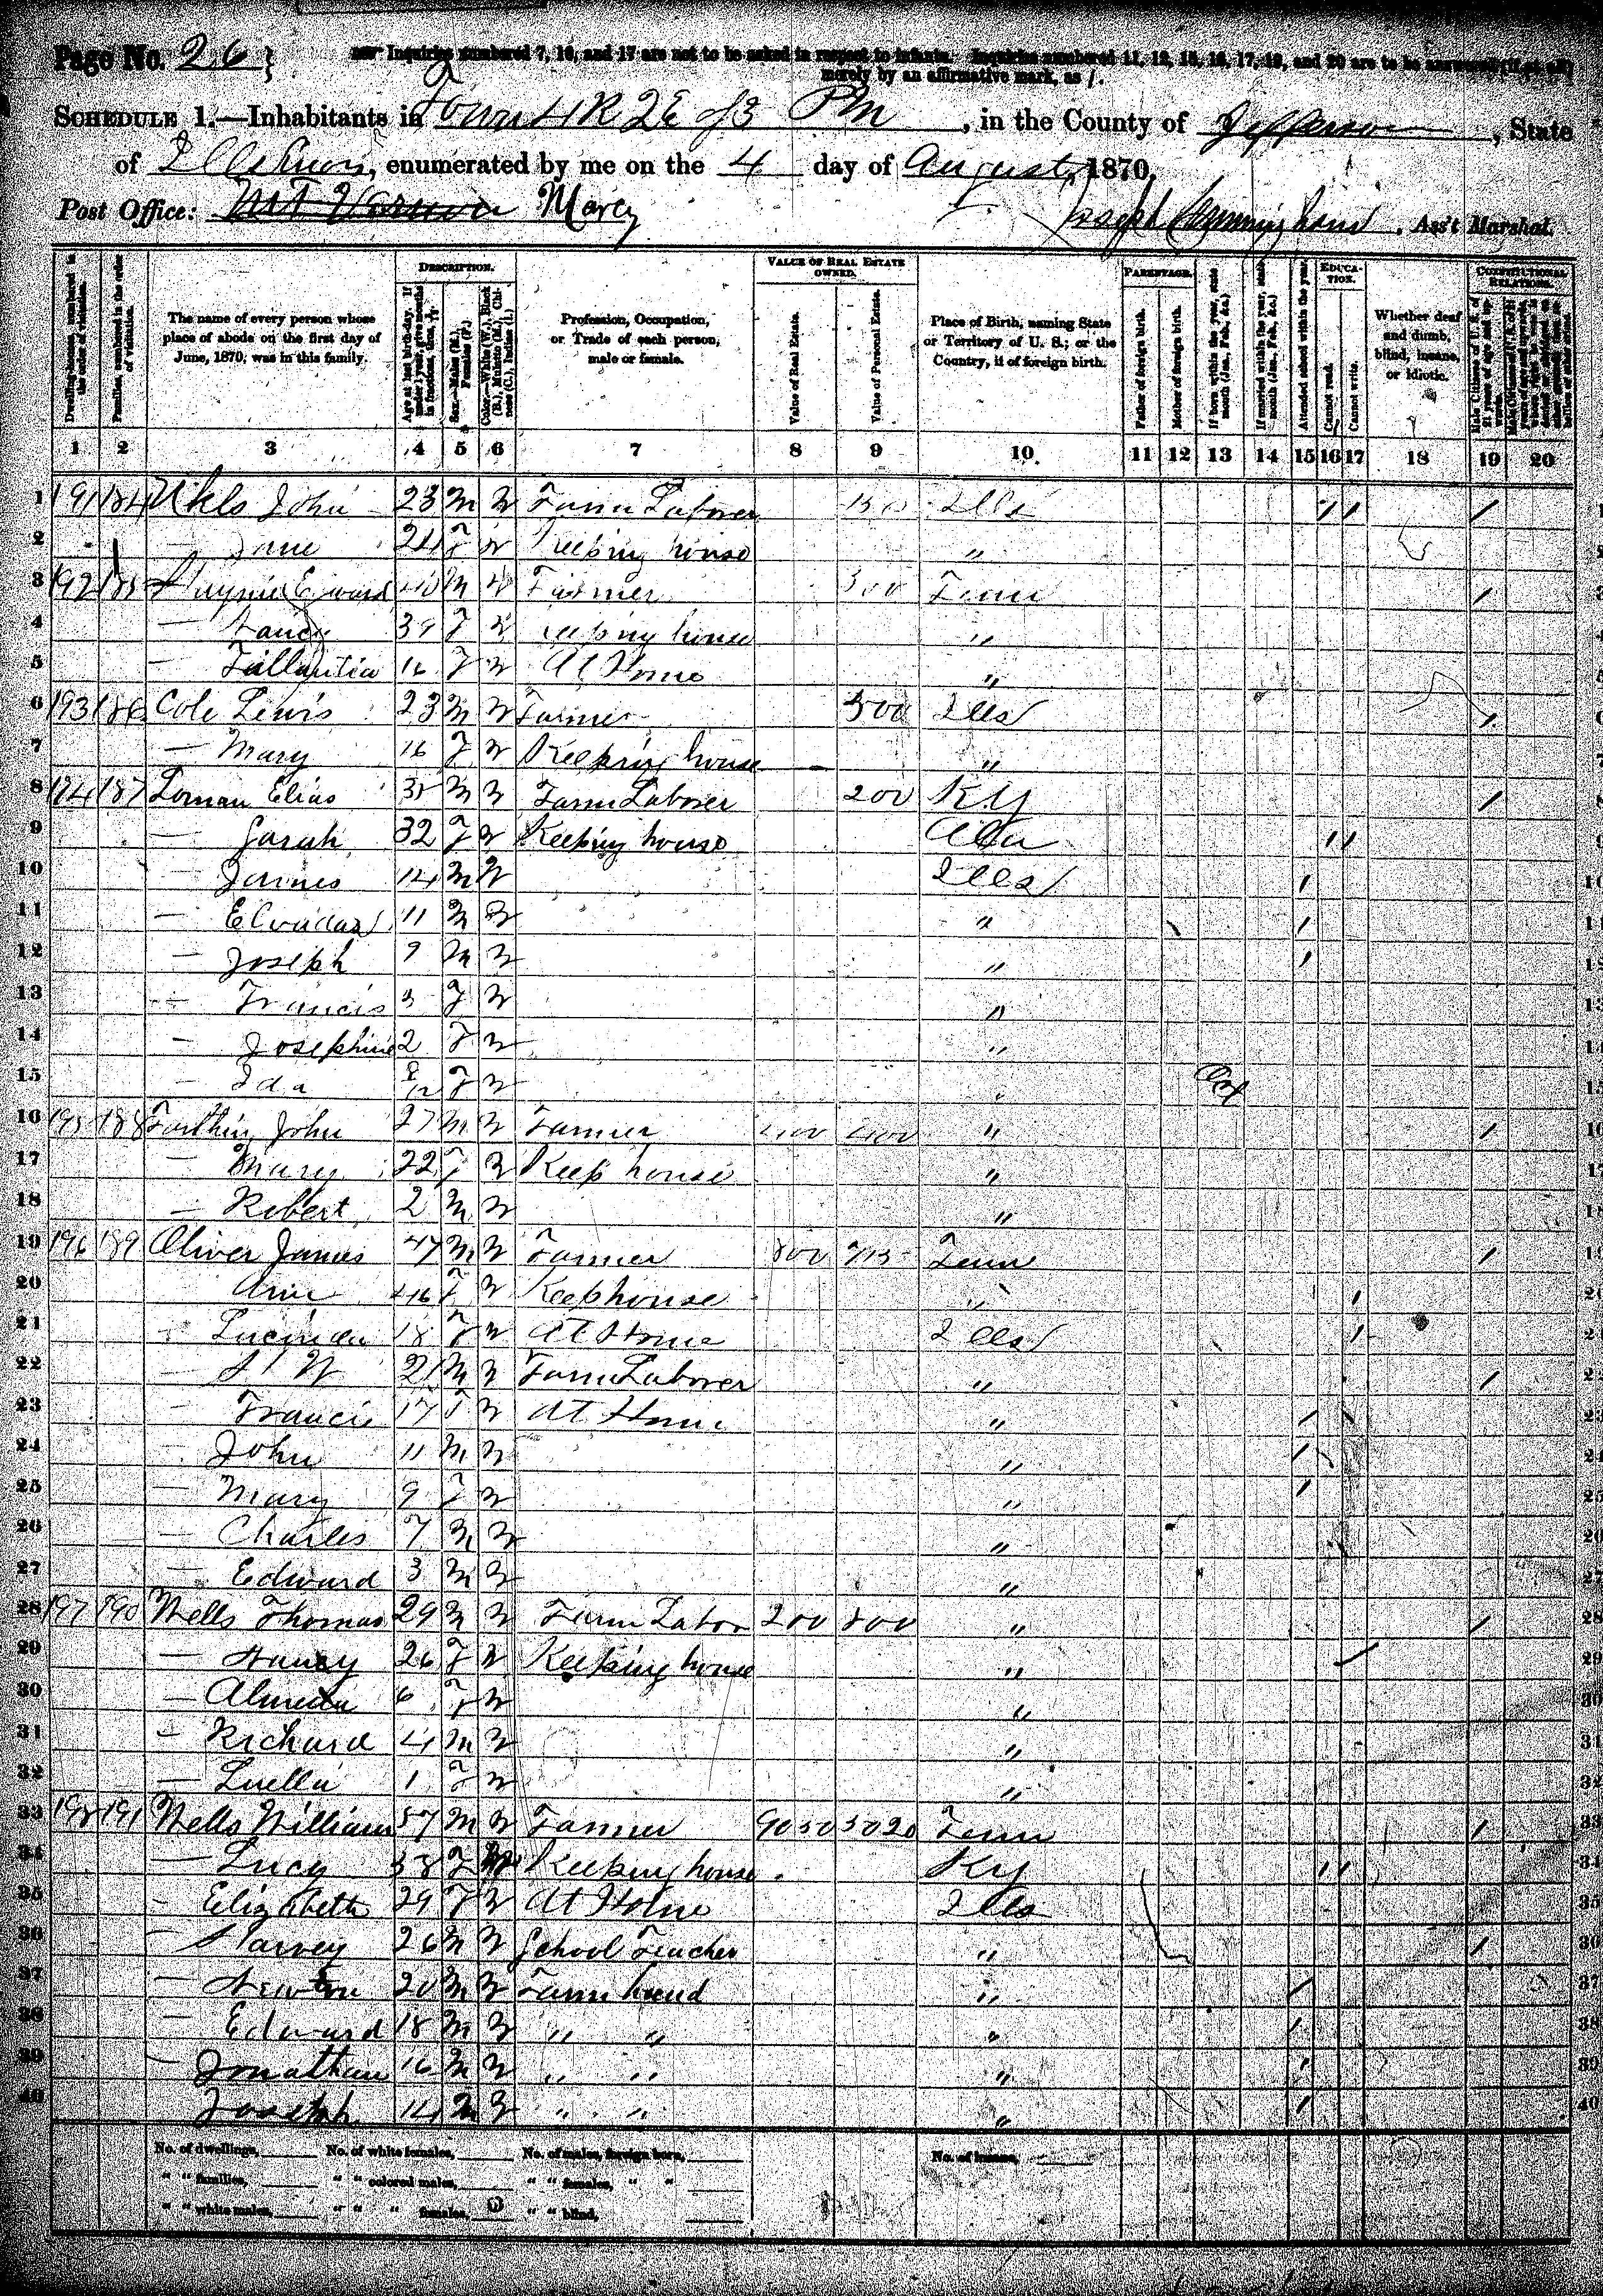 Page No. 26
Inquiries numbered 7, 16, and 17 are not to be asked in respect to infants. Inquiries numbered 11, 12, 15, 16, 17, 19, and 20 are to be answered (if at all)
merely by an affirmative mark, as /.
SCHEDULE 1.—Inhabitants in Town 4 R 2E of 3 PM, in the County of Jefferson, State
of Illinois, enumerated by me on the 4 day of August, 1870.
Post Office: Mt Vernon Marcy Joseph Cunningham, Ass't Marshal.
DESCRIPTION. VALUE OF REAL ESTATE OWNED. PARENTAGE. EDUCATION. CONSTITUTIONAL RELATIONS.
Dwelling-houses, numbered in the order of visitation.
Families, numbered in the order of visitation.
The name of every person whose place of abode on the first day of June, 1870, was in this family.
Age at last birth-day. If under 1 year, give months in fractions, thus, 3/12
Sex.—Males (M.), Females (F.)
Color.—White (W.), Black (B.), Mulatto (M.), Chinese (C.), Indian (I.)
Profession, Occupation, or Trade of each person, male or female.
Value of Real Estate.
Value of Personal Estate.
Place of Birth, naming State or Territory of U. S.; or the Country, if of foreign birth.
Father of foreign birth.
Mother of foreign birth.
If born within the year, state month (Jan., Feb., &c.)
If married within the year, state month (Jan., Feb., &c.)
Attended school within the year.
Cannot read.
Cannot write.
Whether deaf and dumb, blind, insane, or idiotic.
Male Citizens of U. S. of 21 years of age and upwards.
1 2 3 4 5 6 7 8 9 10 11 12 13 14 15 16 17 18 19 20
1 191 184 John 23 M W Farm Laborer 150 Ills / / /
2 — Jane 24 F W Keeping house "
3 192 185 40 M W Farmer 300 Tenn /
4 — Nancy 39 F W Keeping house "
5 — 16 F W At Home "
6 193 186 Cole Lewis 23 M W Farmer 500 Ills /
7 — Mary 16 F W Keeping house "
8 194 187 Loman Elias 35 M W Farm Laborer 200 KY /
9 — Sarah 32 F W Keeping house Ala / /
10 — James 14 M W Ills /
11 — 11 M W " /
12 — Joseph 9 M W " /
13 — Francis 3 F W "
14 — Josephine 2 F W "
15 — Ida 8/12 F W " Oct
16 195 188 Farthing John 27 M W Farmer 400 400 " /
17 — Mary 22 F W Keep house "
18 — Robert 2 M W "
19 196 189 Oliver James 47 M W Farmer 800 715 Tenn /
20 Ann 46 F W Keep house " /
21 — Lucinda 18 F W At Home Ills /
22 — 21 M W Farm Laborer " /
23 — Francis 17 F W At Home " /
24 — John 11 M W " /
25 — Mary 9 F W " /
26 — Charles 7 M W "
27 — Edward 3 M W "
28 197 190 Wells Thomas 29 M W Farm Labor 200 800 " /
29 — Nancy 26 F W Keeping house " /
30 — Almeda 6 F W "
31 — Richard 4 M W "
32 — Luella 1 F W "
33 198 191 Wells William 57 M W Farmer 9050 5020 Tenn /
34 — Lucy 58 F W Keeping house KY / /
35 — Elizabeth 29 F W At Home Ills
36 — Harvey 26 M W School Teacher " /
37 — Newton 20 M W Farm hand " /
38 — Edward 18 M W " " " /
39 — Jonathan 16 M W " " " /
40 Joseph 14 M W " " " /
No. of dwellings, No. of white females, No. of males, foreign born, No. of insane,
" " families, " " colored males, " " females, " "
" " white males, " " " females, " " blind,